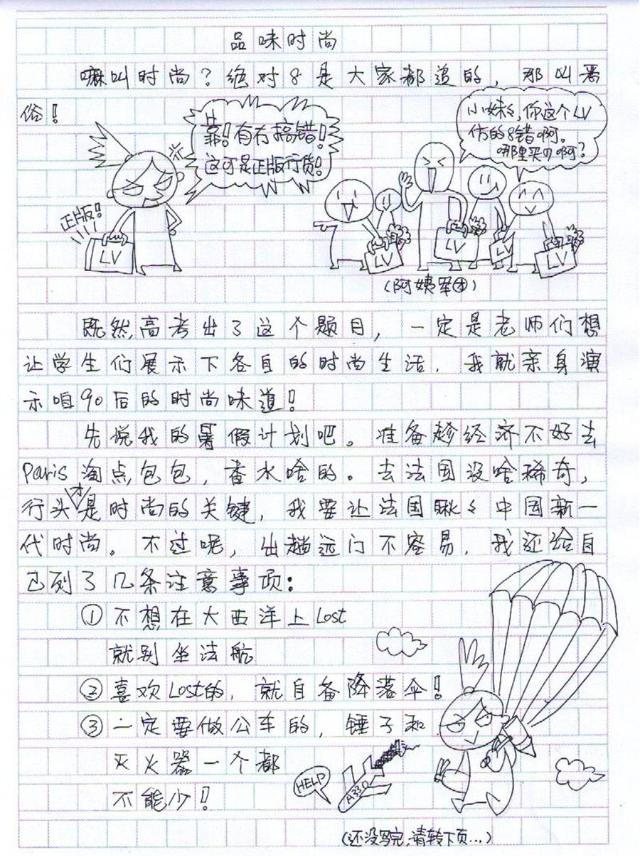 品味时尚
嘛叫时尚?绝对8是大家都追的,那叫恶
俗!
靠!有冇搞错!
这可是正版行货!
正版!
LV
小妹々,你这个LV
仿的8错啊。
哪里买的啊?
LV
LV
LV
LV
(阿姨军团)
既然,高考出了这个题目,一定是老师们想
让学生们展示下各自的时尚生活,我就亲身演
示咱90后的时尚味道!
先说我的暑假计划吧。准备趁经济不好去
Paris淘点包包,香水啥的。去法国没啥稀奇,
行头才是时尚的关键,我要让法国瞅々中国新一
代时尚。不过呢,出趟远门不容易,我还给自
己列了几条注意事项:
①不想在大西洋上Lost
就别坐法航
②喜欢Lost的,就自备降落伞!
③一定要做公车的,锤子和
灭火器一个都
不能少!
HELP
A330
(还没写完,请转下页...)